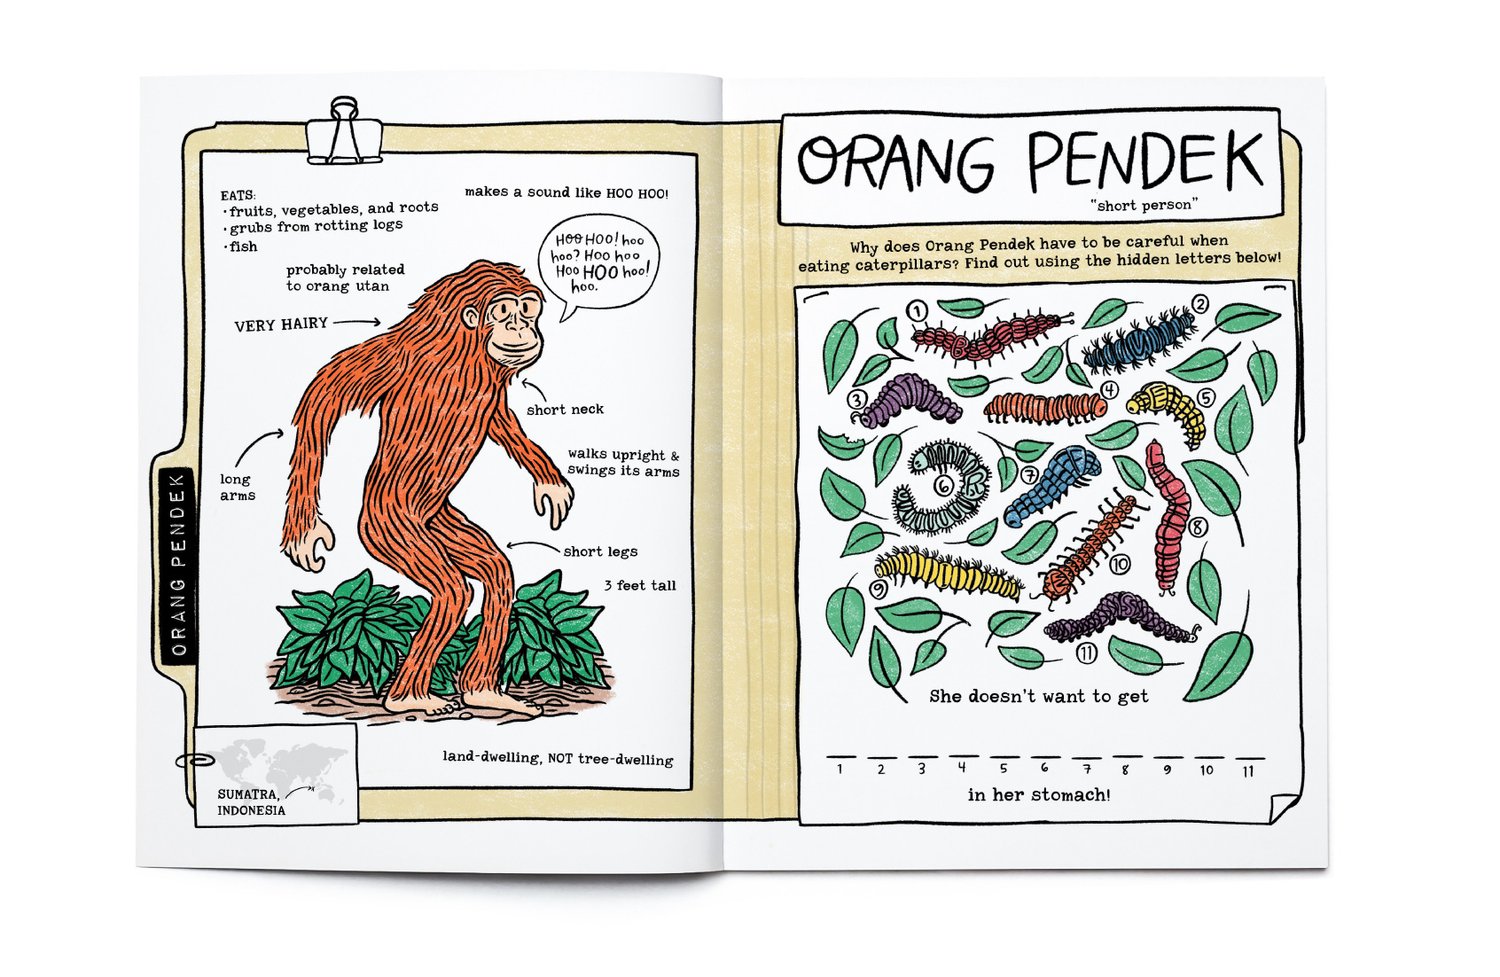 EATS:
· fruits, vegetables, and roots
· grubs from rotting logs
· fish
makes a sound like HOO HOO!
HOO HOO! hoo
hoo? Hoo hoo
Hoo HOO hoo!
hoo.
probably related
to orang utan
VERY HAIRY
short neck
walks upright &
swings its arms
long
arms
short legs
3 feet tall
land-dwelling, NOT tree-dwelling
ORANG PENDEK
SUMATRA,
INDONESIA
ORANG PENDEK
"short person"
Why does Orang Pendek have to be careful when
eating caterpillars? Find out using the hidden letters below!
1
2
3
4
5
6
7
8
9
10
11
B
S
She doesn't want to get
1 2 3 4 5 6 7 8 9 10 11
in her stomach!